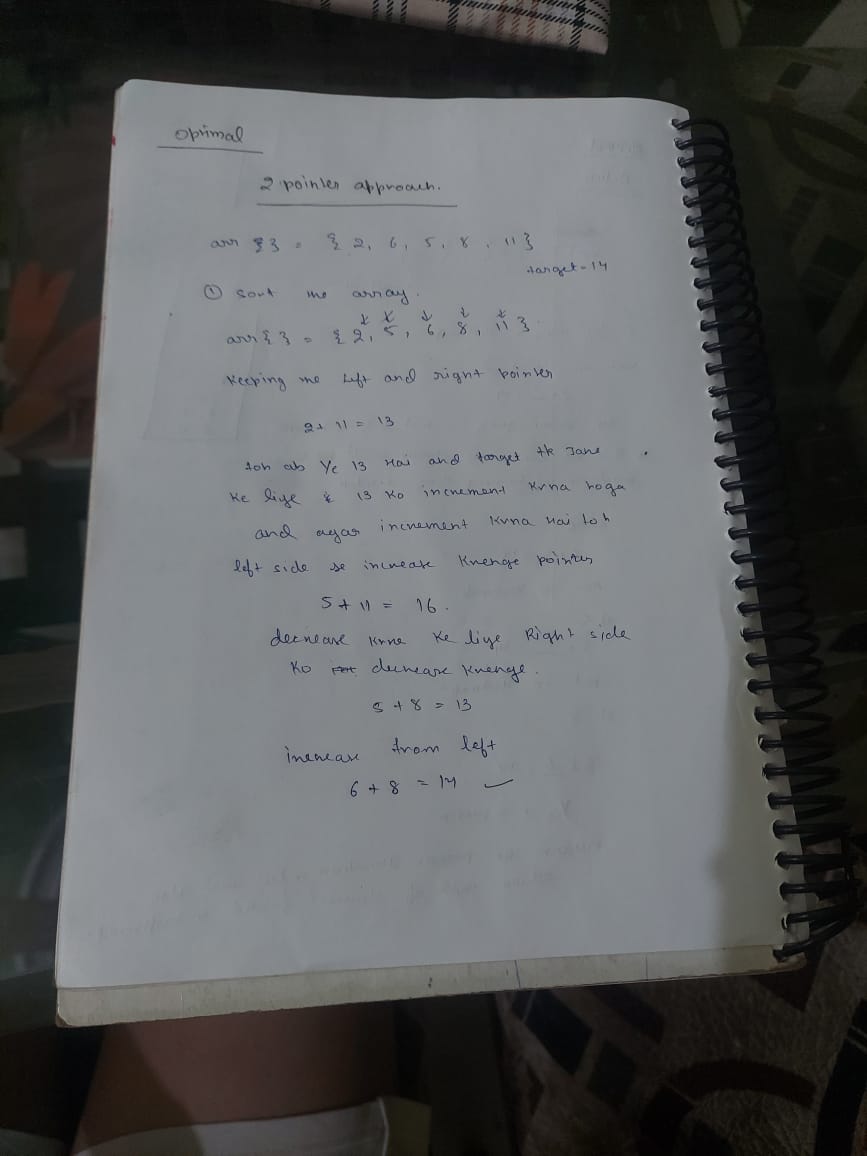 Optimal
2 pointer approach.
arr {} = { 2, 6, 5, 8, 11 }
target = 14
① Sort the array.
arr { } = { 2, 5, 6, 8, 11 }
Keeping the left and right pointer
2 + 11 = 13
toh ab Ye 13 Hai and target tk Jane
Ke liye 13 Ko increment Krna hoga
and agar increment Krna Hai toh
left side se increase Krenge pointer
5 + 11 = 16.
decrease Krne Ke liye Right side
Ko decrease Krenge.
5 + 8 = 13
increase from left
6 + 8 = 14 ✓